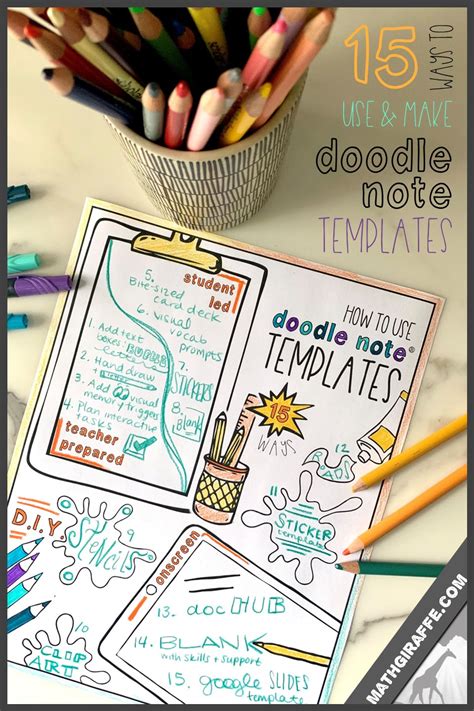 15
WAYS TO
USE & MAKE
doodle
note
TEMPLATES
student
led
5.
Bite-sized
card deck
6. visual
vocab
prompts
7.
STICKERS
8.
Blank
1. Add text
boxes: BUBBLE
letters
2. Hand draw +
3. Add visual
memory triggers
4. Plan interactive
tasks
teacher
prepared
HOW TO USE
doodle note®
TEMPLATES
15
WAYS
12
11
STICKER
D.I.Y.
9
STENCILS
10
CLIP
ART
onscreen
13. doc HUB
14. BLANK
with skills + support
15. google SLIDES
template
MATHGIRAFFE.COM